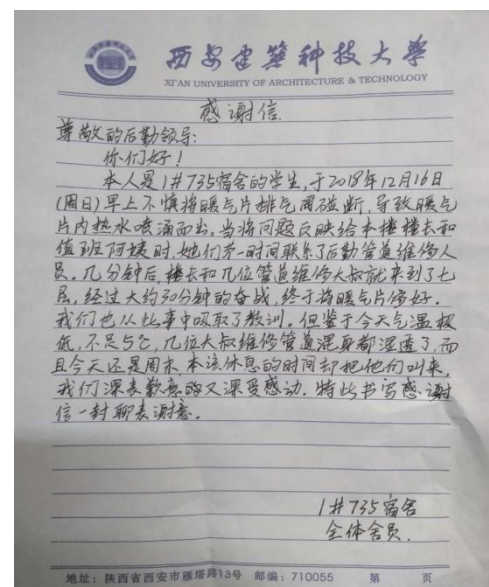 西安建筑科技大学
XI'AN UNIVERSITY OF ARCHITECTURE & TECHNOLOGY
感谢信.
尊敬的后勤领导:
你们好!
本人是1#735宿舍的学生,于2018年12月16日
(周日)早上不慎将暖气片排气阀碰断,导致暖气
片内热水喷涌而出,当将问题反映给本楼楼长和
值班阿姨时,她们第一时间联系了后勤管道维修人
员。几分钟后,楼长和几位管道维修大叔就来到了七
层,经过大约30分钟的奋战,终于将暖气片修好。
我们也从此事中吸取了教训。但鉴于今天气温极
低,不足5℃,几位大叔维修管道浑身都湿透了,而
且今天还是周末,本该休息的时间却把他们叫来,
我们深表歉意的又深受感动.特此书写感谢
信一封聊表谢意。
1#735宿舍
全体舍员.
地址:陕西省西安市雁塔路13号 邮编:710055 第 页